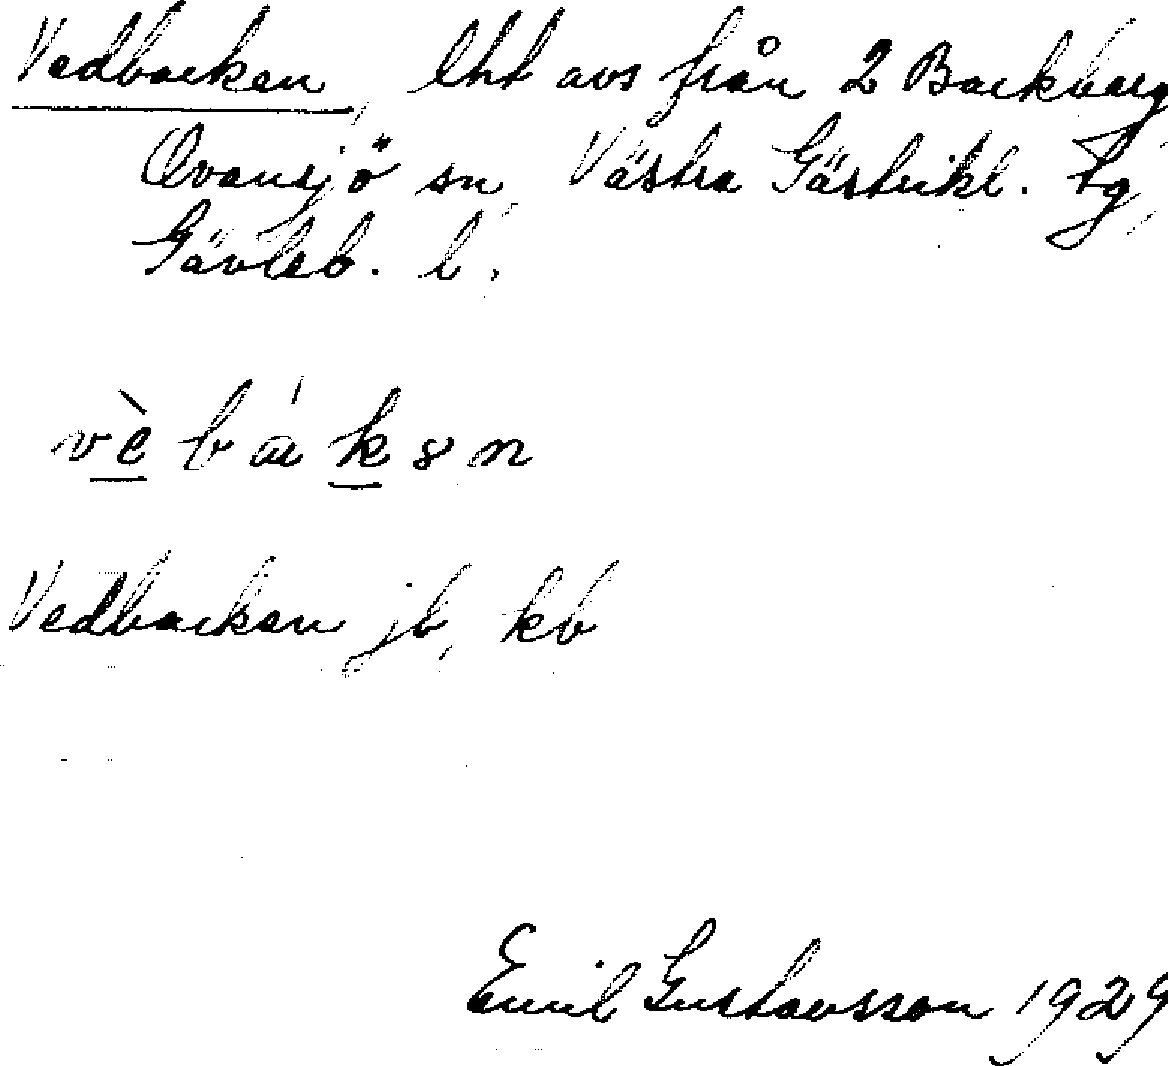 Vedbacken, lht avs från 2 Backberg
Ovansjö sn, Västra Gästrikl. tg,
Gävleb. l.
vè bákən
Vedbacken jb, kb
Emil Gustavsson 1929